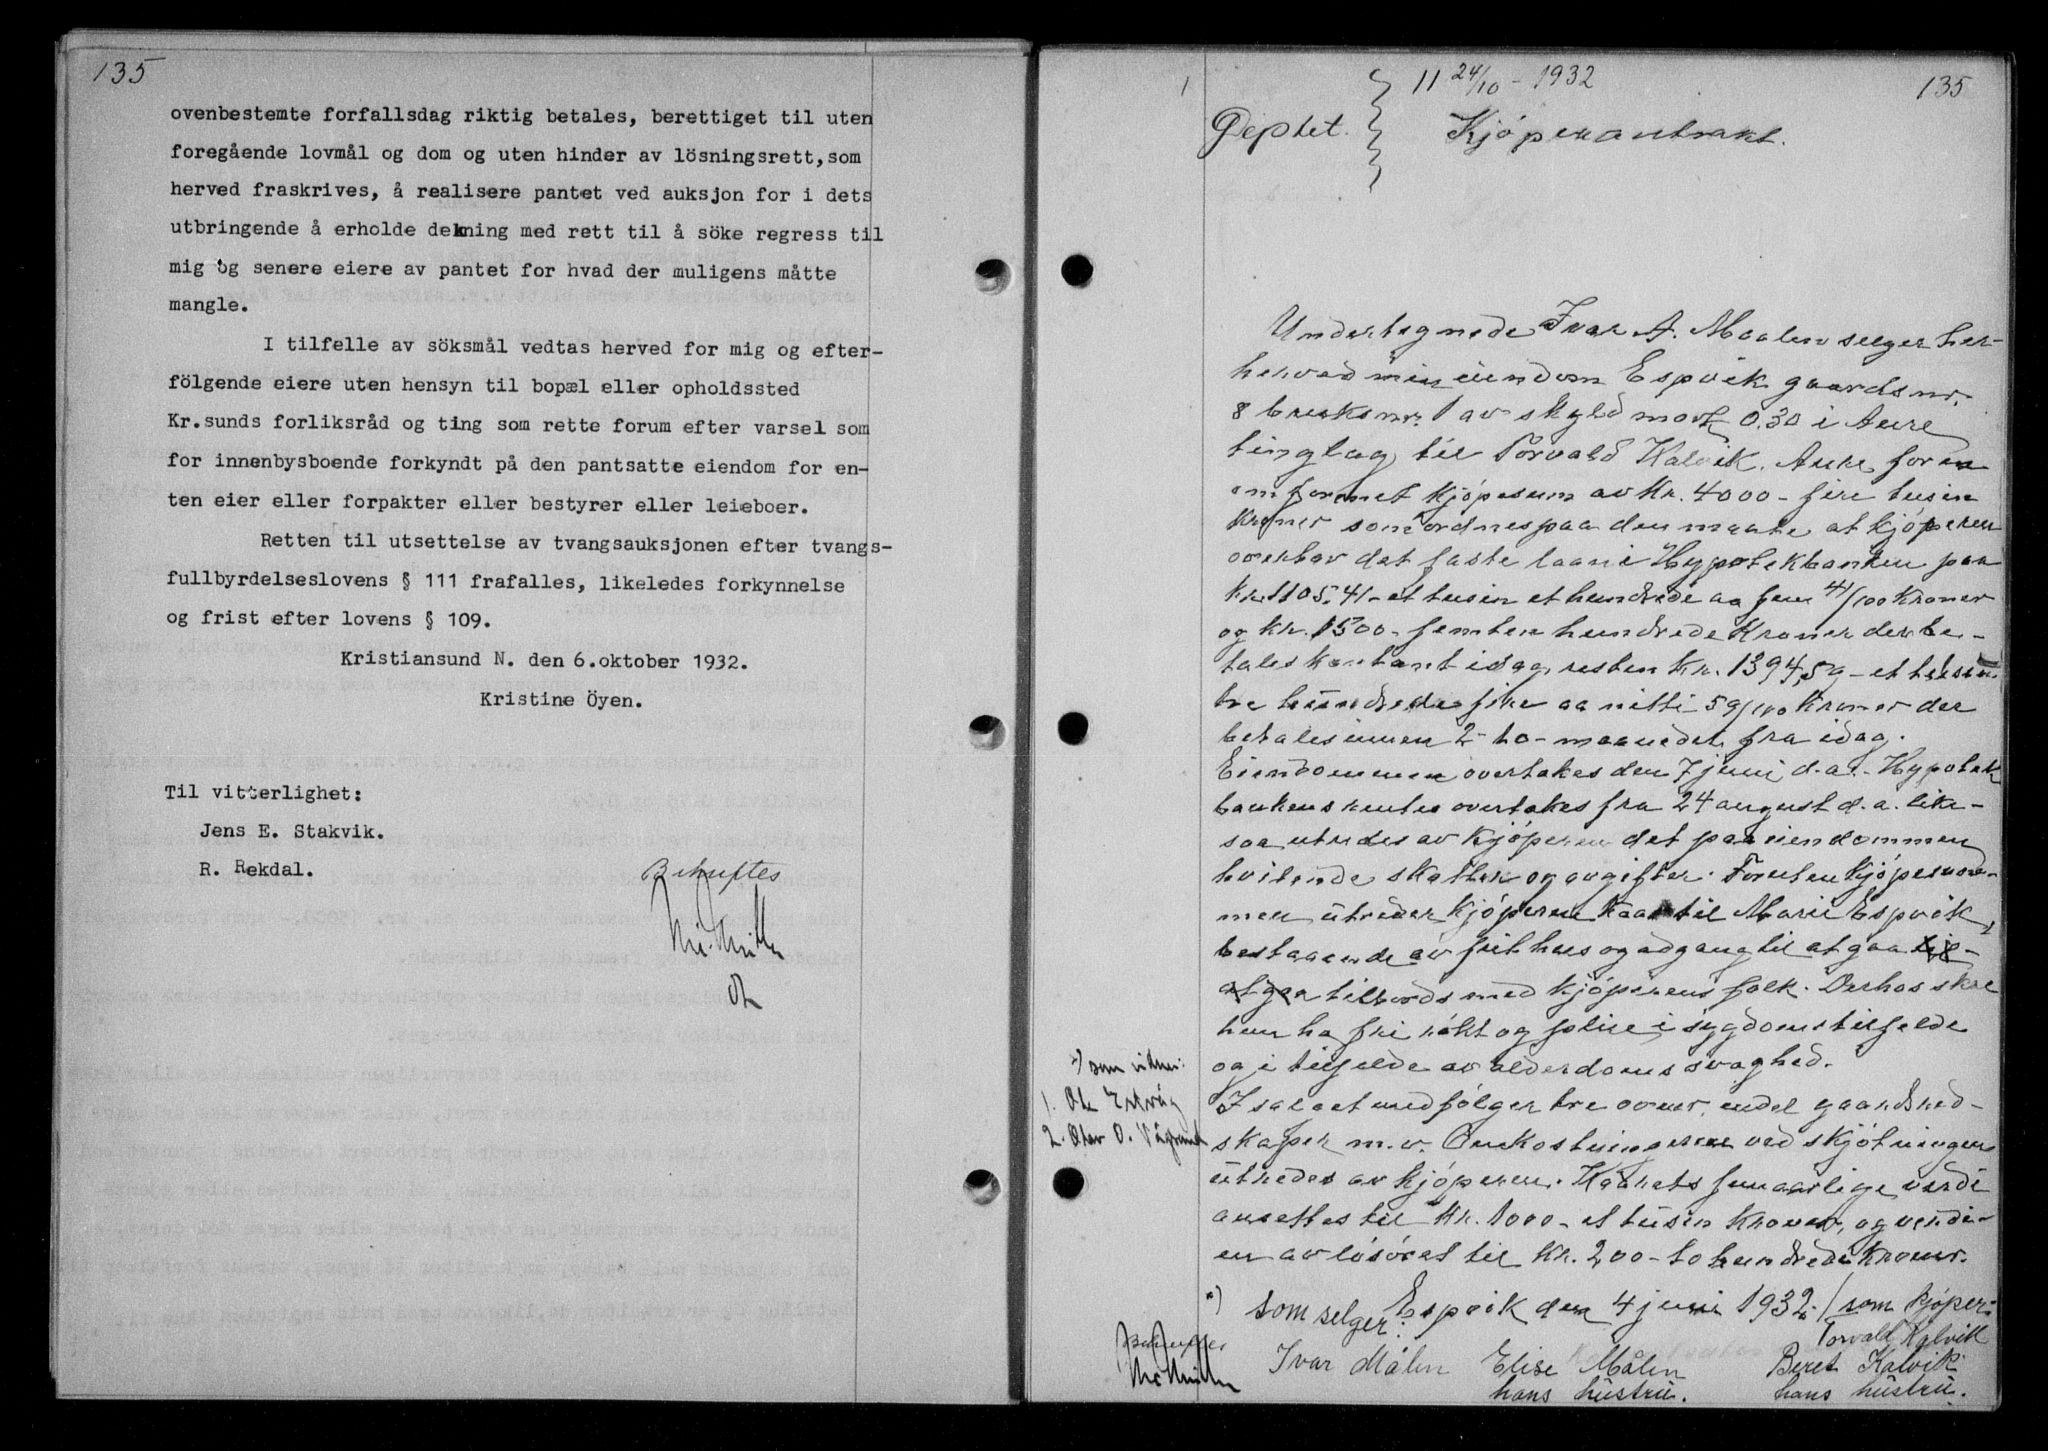 135
ovenbestemte forfallsdag riktig betales, berettiget til uten
foregående lovmål og dom og uten hinder av lösningsrett, som
herved fraskrives, å realisere pantet ved auksjon for i dets
utbringende å erholde dekning med rett til å söke regress til
mig og senere eiere av pantet for hvad der muligens måtte
mangle.
I tilfelle av söksmål vedtas herved for mig og efter-
fölgende eiere uten hensyn til bopæl eller opholdssted
Kr.sunds forliksråd og ting som rette forum efter varsel som
for innenbysboende forkyndt på den pantsatte eiendom for en-
ten eier eller forpakter eller bestyrer eller leieboer.
Retten til utsettelse av tvangsauksjonen efter tvangs-
fullbyrdelseslovens § 111 frafalles, likeledes forkynnelse
og frist efter lovens § 109.
Kristiansund N. den 6.oktober 1932.
Kristine Öyen.
Til vitterlighet:
Jens E. Stakvik.
R. Rekdal.
Bekreftes
1
11 24/10 - 1932
135
Kjöpekontrakt.
Undertegnede Ivar A. Maalen selger her-
herved min eiendom Espvik gaardsnr.
8 bruksnr. 1 av skyld mark 0.30 i Aure
tinglag til Torvald Kalvik, Aure for en
omforenet kjöpesum av Kr. 4000 - fire tusin
Kroner som ordnes paa den maate at kjöperen
overtar det faste laan i Hypotekbanken paa
Kr. 1105.41 - et tusin et hundrede aa fem 41/100 Kroner
og Kr. 1500 - femten hundrede Kroner der be-
tales kontant idag, resten Kr. 1394,59 - et tusin
tre hundrede fire aa nitti 59/100 Kroner der
betales innen 2 - to - maaneder fra idag.
Eiendommen overtakes den 7 juni d.a. - Hypotek
bankens renter overtakes fra 24 august d.a. like-
saa utredes av kjöperen det paa eiendommen
hvilende skatter og avgifter. Foruten kjöpesum-
men utreder kjöperen kaar til Marie Espvik,
bestaaende av frit hus og adgang til at gaa til
at gaa tilbords med kjöperens folk. Derhos skal
hun ha fri rökt og pleie i sygdomstilfelde
og i tilfelde av alderdomssvaghed.
I salget medfölger tre ovner, endel gaardsred-
skaper m.v. Omkostningerne ved skjötningen
utredes av kjöperen. Kaarets femaarlige verdi
ansettes til Kr. 1000 - et tusin Kroner, og verdi-
en av lösöret til Kr. 200 - to hundrede Kroner.
Espvik den 4 juni 1932. / som kjöper:
*) som selger:
Torvald Kalvik
Ivar Målen Elise Målen Beret Kalvik
hans hustru. hans hustru.
*) som vitner:
1. Ole Eskväg
2. Olav O.
Bekreftes